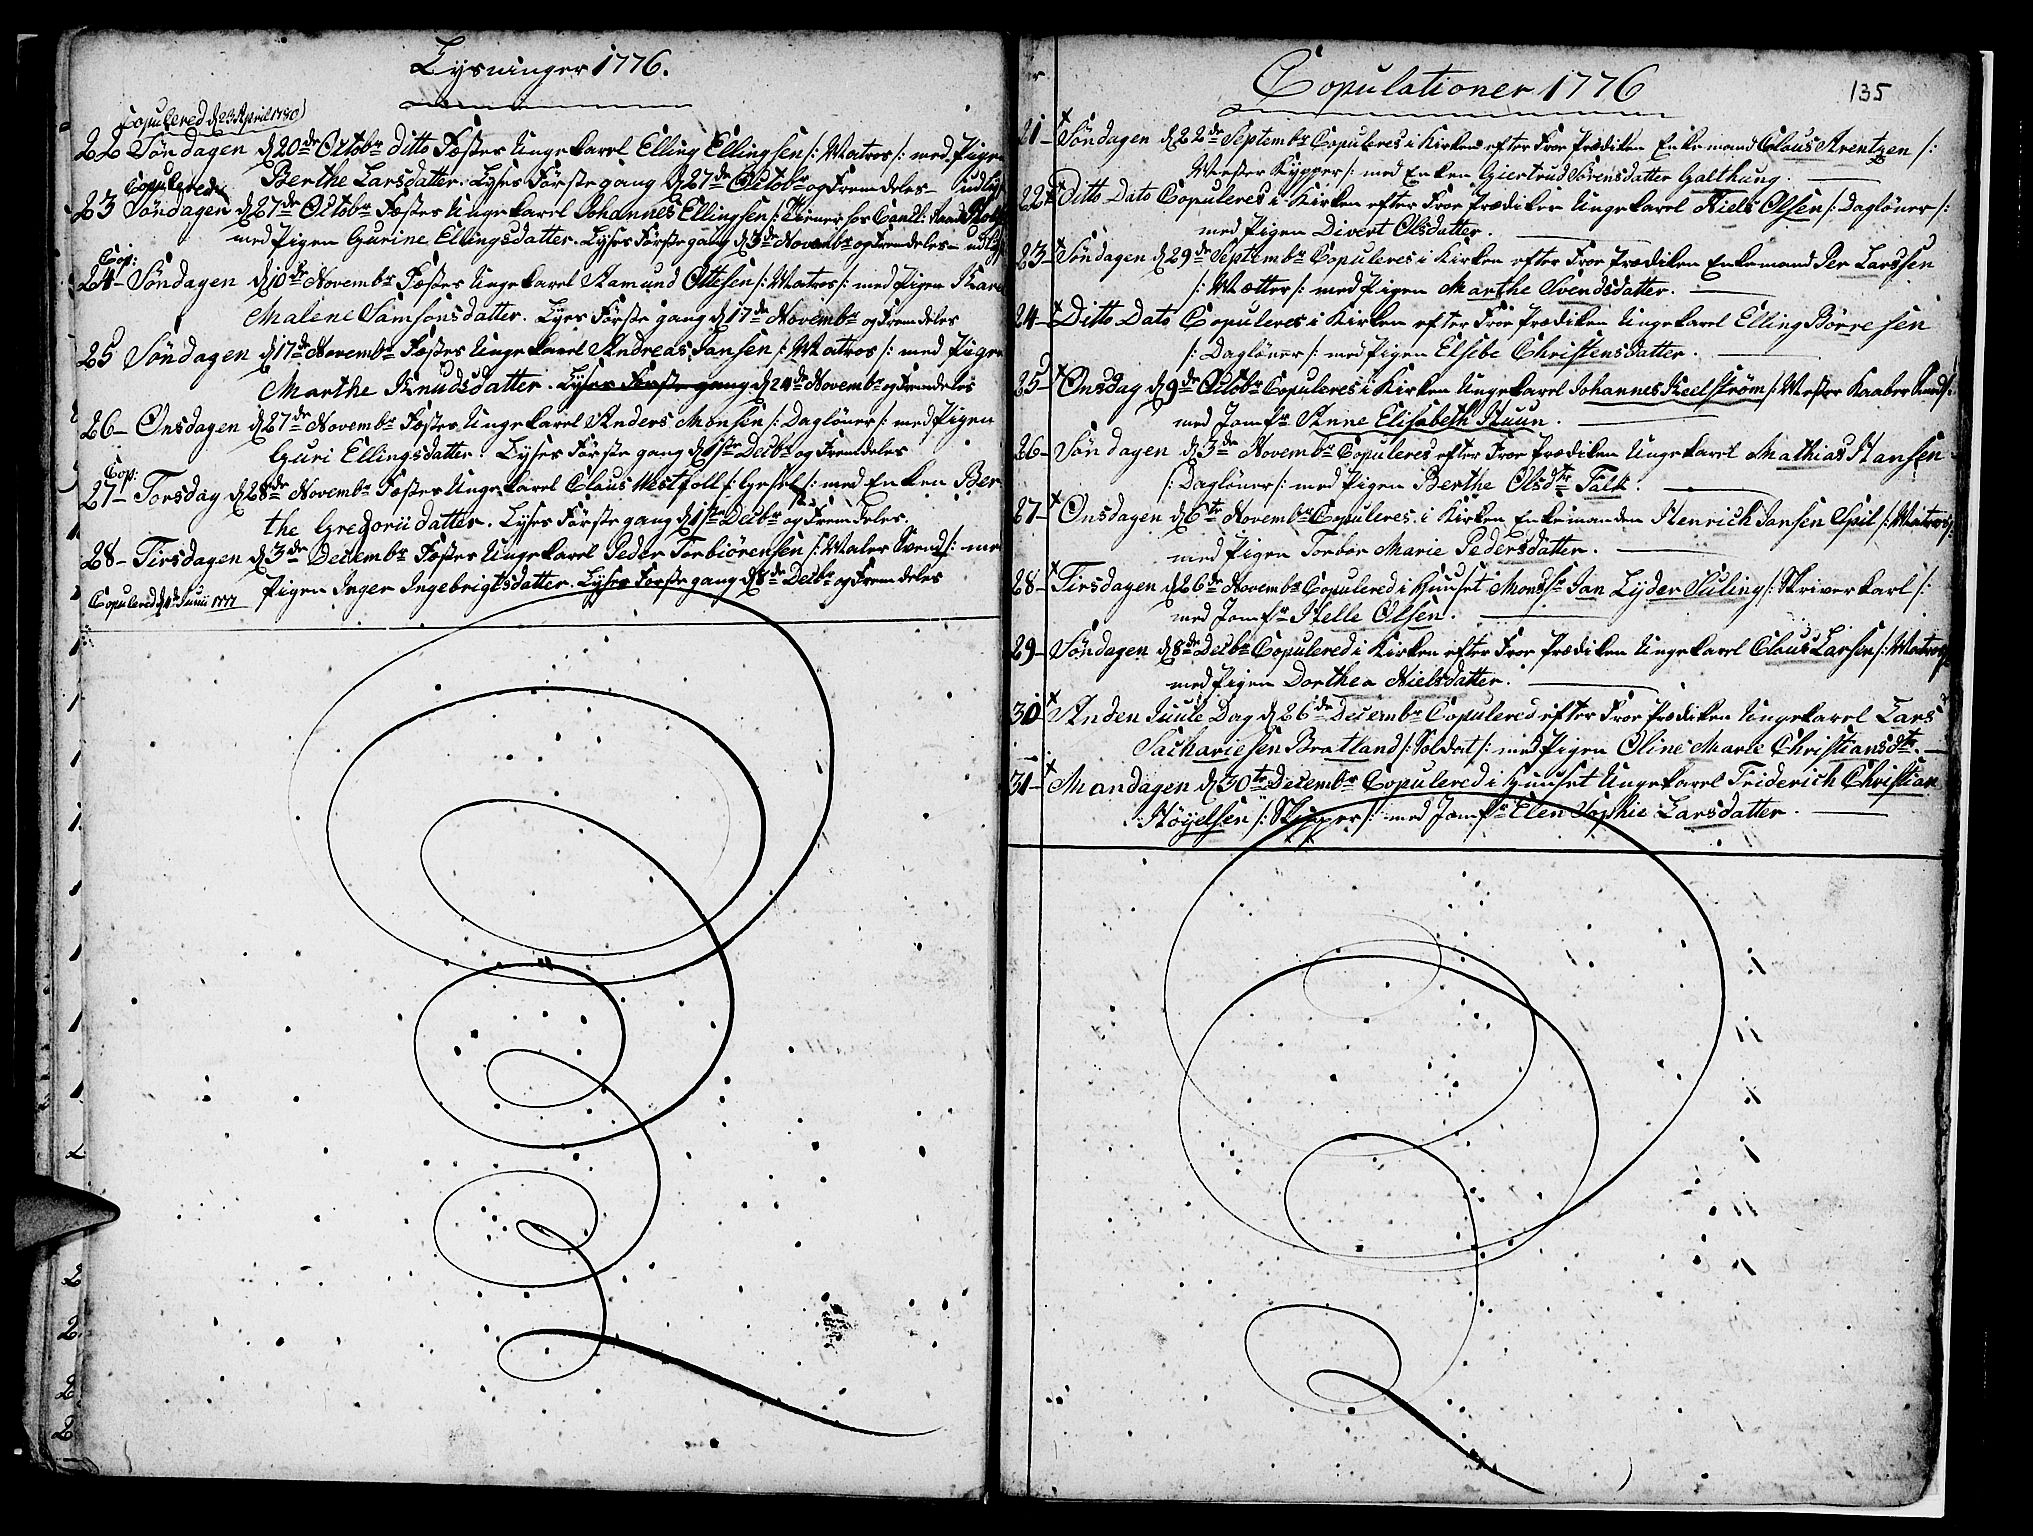 Lysninger 1776.
Copulered d 23 April 1780
22 Söndagen d 20de Octobr ditto Fæstes Ungekarl Elling Ellingsen /: Matros :/ med Pigen
Berthe Larsdatter. Lyses Første gang d 27de Octobr og Fremdeles
Copulerede
23 Söndagen d 27de Octobr Fæstes Ungekarl Johannes Ellingsen /: Tiener hos
med Pigen Gurine Ellingsdatter. Lyses Første gang d 3de Novembr og Fremdeles
Cop:
24 - Söndagen d 10de Novembr Fæstes Ungekarl Aamund Ottesen /: Matros :/ med Pigen Karen
Malene Samsonsdatter. Lyses Første gang d 17de Novembr og Fremdeles
25 Söndagen d 17de Novembr Fæstes Ungekarl Andreas Jansen /: Matros :/ med Pigen
Marthe Knudsdatter. Lyses Første gang d 24de Novembr og Fremdeles
26 - Onsdagen d 27de Novembr Fæstes Ungekarl Anders Monsen /: Daglöner :/ med Pigen
Guri Ellingsdatter. Lyses Første gang d 1ste Decbr og Fremdeles
Cop:
27 - Torsdag d 28de Novembr Fæstes Ungekarl Claus Westfall /: Gesel :/ med Enken Ber
the Gregorii datter. Lyses Første gang d 1ste Decbr og Fremdeles.
28 - Tirsdagen d 3de Decembr Fæstes Ungekarl Peder Torbiörensen /: Maler Svend :/ med
Pigen Inger Ingebrigtsdatter. Lyses Første gang d 8de Decbr og Fremdeles
Copulered d 4de Junii 1777
Copulationer 1776
135
21 - Söndagen d 22de Septembr Copuleres i Kirken efter Froe Prædiken Enkemand Claus Arentzen /:
Mester Kypper :/ med Enken Giertrud Svensdatter Galthung.
22 Ditto Dato Copuleres i Kirken efter Froe Prædiken Ungekarl Niels Olsen /: Daglöner :/
med Pigen Divert Olsdatter.
23 - Söndagen d 29de Septembr Copuleres i Kirken efter Froe Prædiken Enkemand Per Larssen
/: Wægter :/ med Pigen Marthe Svendsdatter.
24 - Ditto Dato Copuleres i Kirken efter Froe Prædiken Ungekarl Elling Börresen
/: Daglöner :/ med Pigen Elsebe Christensdatter.
25 - Onsdag d 9de Octobr Copuleres i Kirken Ungekarl Johannes Keelström /: Mester Kaaber Smed :/
med Jomfr Anne Elisabeth Stuun.
26 - Söndagen d 3de Novembr Copuleres efter Froe Prædiken Ungekarl Mathias Hansen
/: Daglöner :/ med Pigen Berthe Olsdtr Falk.
27 - Onsdagen d 6te Novembr Copuleres i Kirken Enkemanden Henrich Jansen Spil /: Matros :/
med Pigen Torbor Marie Pedersdatter.
28 - Tirsdagen d 26de Novembr Copulered i Huuset Monsr Jan Lyder Süling /: Skriverkarl :/
med Jomfr Helle Olsen.
29 - Söndagen d 8de Decbr Copulered i Kirken efter Froe Prædiken Ungekarl Claus Larsen /: Matros :/
med Pigen Dorthea Nielsdatter.
30 Anden Juule Dag d 26de Decembr Copulered efter Froe Prædiken Ungekarl Lars
Sachariesen Bratland /: Soldat :/ med Pigen Oline Marie Christiansdtr.
31 - Mandagen d 30te Decembr Copulered i Huuset Ungekarl Friderich Christian
Höyelsen /: Skipper :/ med Jomfr Elen Sophie Larsdatter